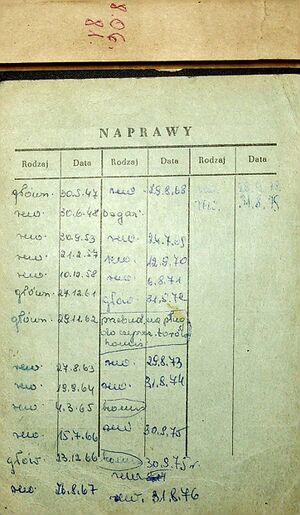 8.06
81
NAPRAWY
Rodzaj Data Rodzaj Data Rodzaj Data
główn. 30.5.47 rew. 29.8.68
rew. 30.6.48
rew. 30.9.53 rew. 24.7.69
rew. 21.2.57 rew. 12.9.70
rew. 10.12.58 rew. 6.8.71
główn. 27.12.61 główn. 31.5.72
główn. 29.12.62 przebud. na pług
rew. 27.8.63 rew. 29.8.73
rew. 19.9.64 rew. 31.8.74
rew. 4.3.65
rew. 15.7.66 rew. 30.9.75
główn. 23.12.66 30.9.75 r
rew. 26.8.67 rew. 31.8.76